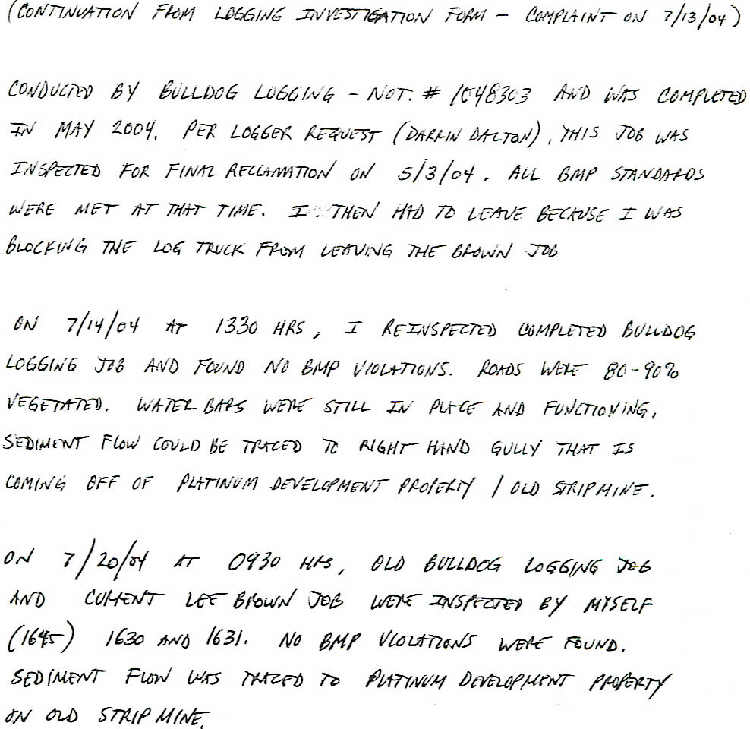 (CONTINUATION FROM LOGGING INVESTIGATION FORM - COMPLAINT ON 7/13/04)
CONDUCTED BY BULLDOG LOGGING - NOT. # 1048303 AND WAS COMPLETED
IN MAY 2004. PER LOGGER REQUEST (DARRIN DALTON), THIS JOB WAS
INSPECTED FOR FINAL RECLAMATION ON 5/3/04. ALL BMP STANDARDS
WERE MET AT THAT TIME. I THEN HAD TO LEAVE BECAUSE I WAS
BLOCKING THE LOG TRUCK FROM LEAVING THE BROWN JOB
ON 7/14/04 AT 1330 HRS, I REINSPECTED COMPLETED BULLDOG
LOGGING JOB AND FOUND NO BMP VIOLATIONS. ROADS WERE 80-90%
VEGETATED. WATER BARS WERE STILL IN PLACE AND FUNCTIONING,
SEDIMENT FLOW COULD BE TRACED TO RIGHT HAND GULLY THAT IS
COMING OFF OF PLATINUM DEVELOPMENT PROPERTY / OLD STRIP MINE.
ON 7/20/04 AT 0930 HRS, OLD BULLDOG LOGGING JOB
AND CURRENT LEE BROWN JOB WERE INSPECTED BY MYSELF
(1645) 1630 AND 1631. NO BMP VIOLATIONS WERE FOUND.
SEDIMENT FLOW WAS TRACED TO PLATINUM DEVELOPMENT PROPERTY
ON OLD STRIP MINE.